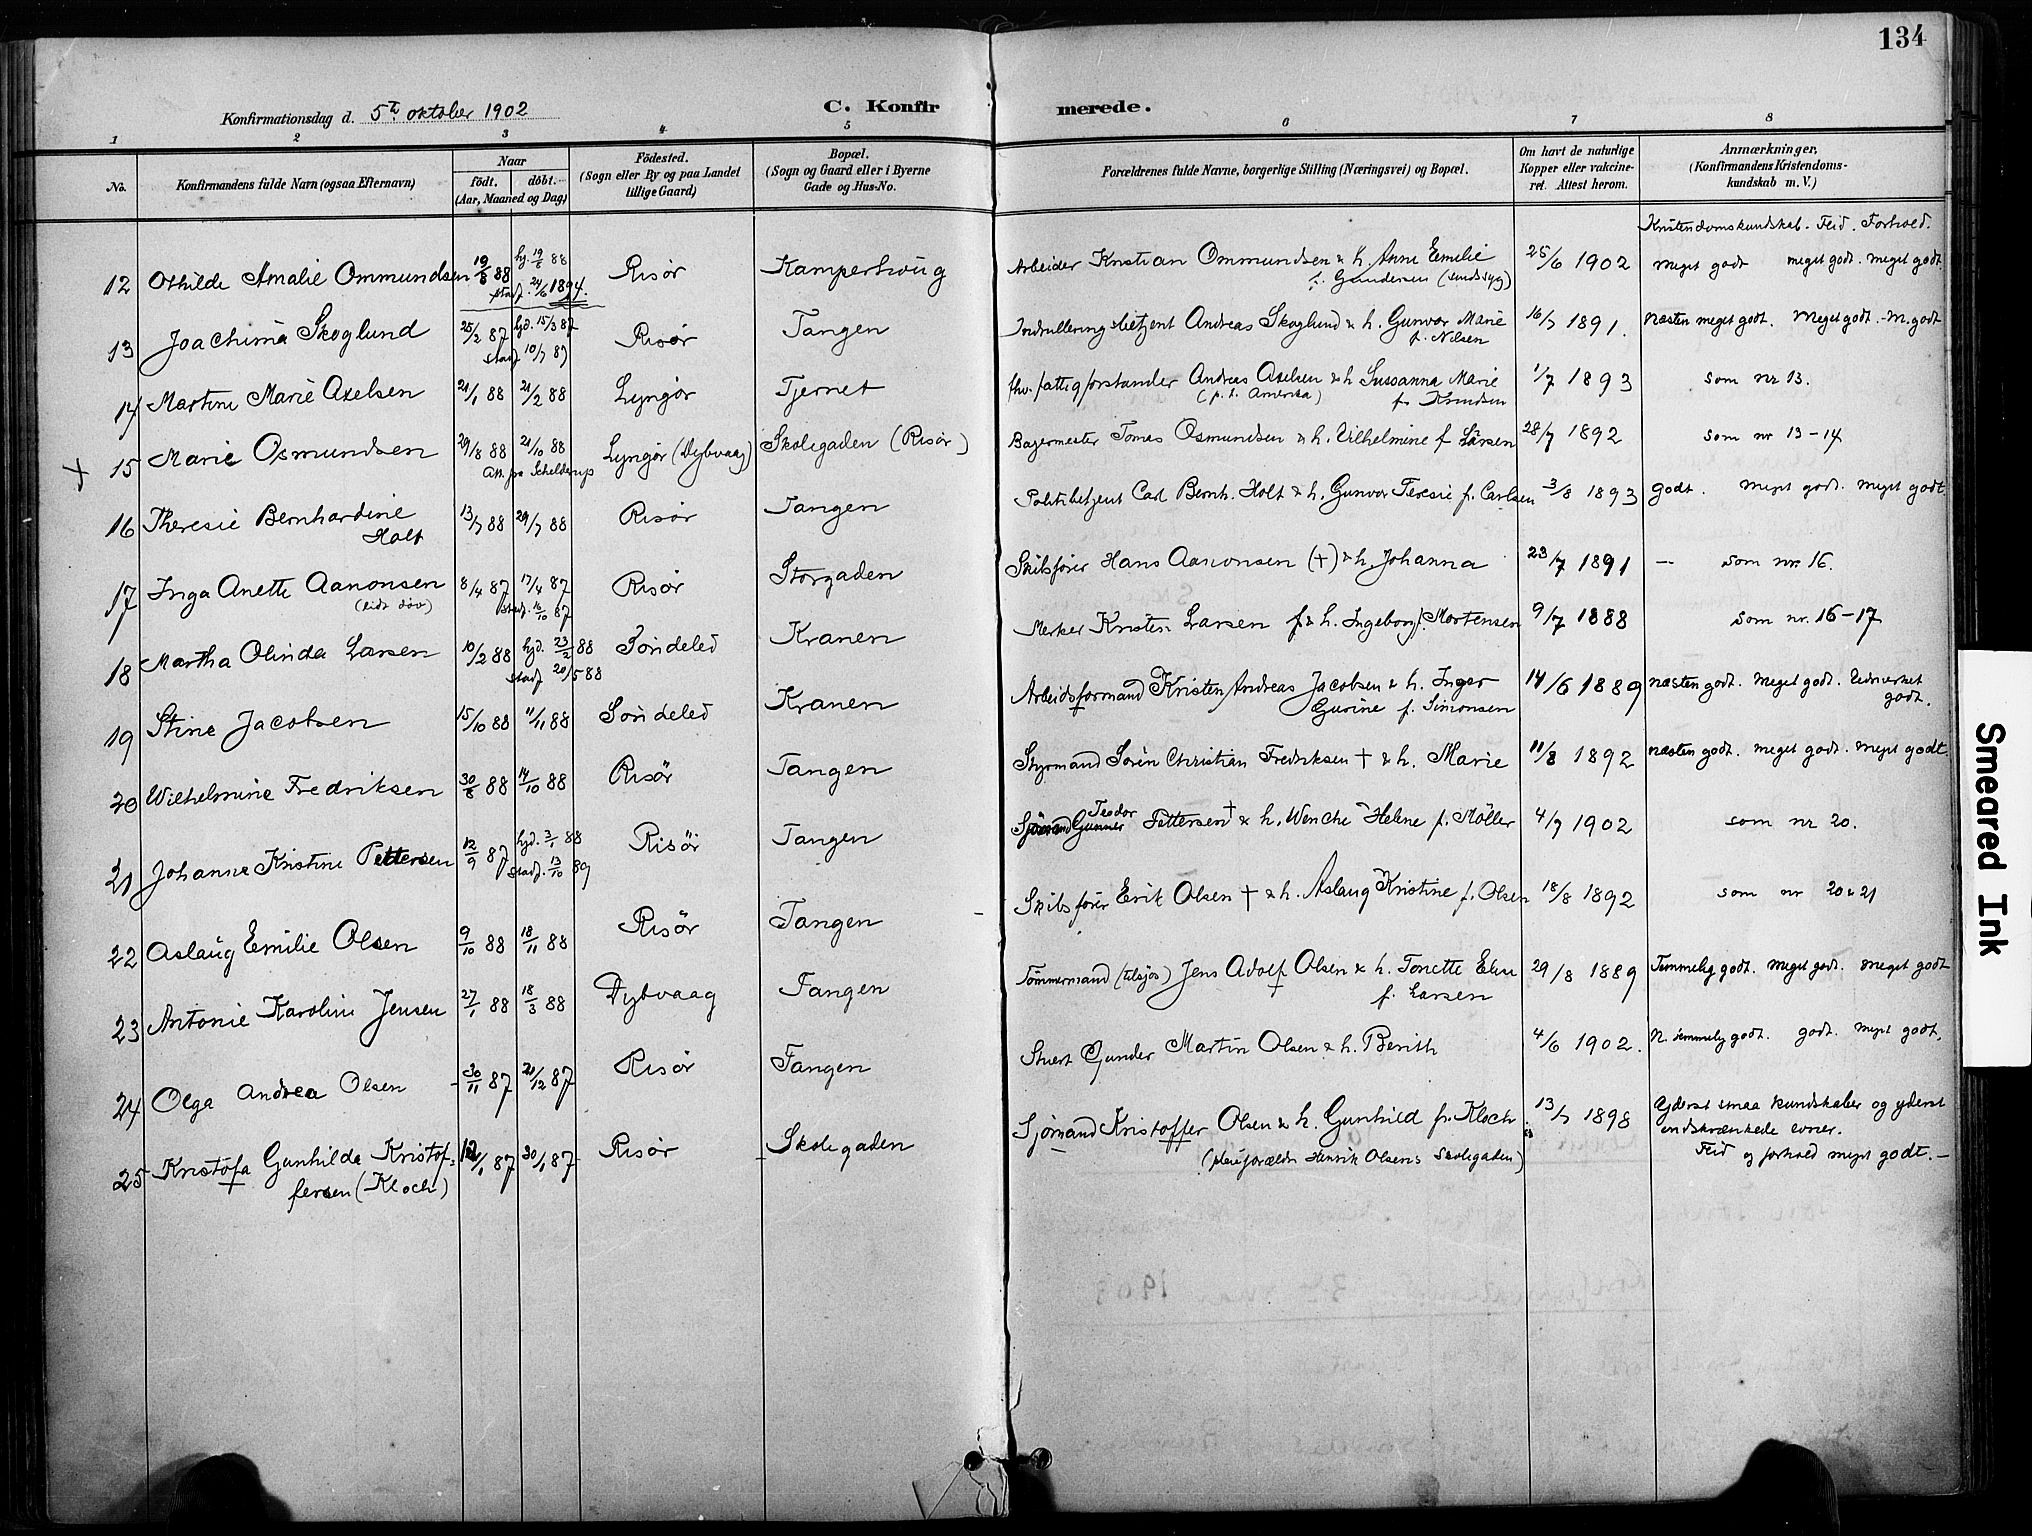 134
Konfirmationsdag d. 5te oktober 1902
C. Konfirmerede.
1 2 3 4 5 6 7 8
No.
Konfirmandens fulde Navn (ogsaa Efternavn)
Naar
födt. döbt.
(Aar, Maaned og Dag)
Födested.
(Sogn eller By og paa Landet
tillige Gaard)
Bopæl.
(Sogn og Gaard eller i Byerne
Gade og Hus-No.
Forældrenes fulde Navne, borgerlige Stilling (Næringsvei) og Bopæl.
Om havt de naturlige
Kopper eller vakcine-
ret. Attest herom.
Anmærkninger,
(Konfirmandens Kristendoms-
kundskab m. V.)
Kristendomskundskab. Flid. Forhold.
12 Othilde Amalie Ommundsen 19/8 88 hj. 19/8 88 Risör Kamperhoug Arbeider Kristian Ommundsen & h. Anne Emilie 25/6 1902 meget godt meget godt. meget godt
stadf. 24/6 1894. f. Gundersen (sindssyg)
13 Joachima Skoglund 25/2 87 hjd. 15/3 87 Risør Tangen Indrulleringsbetjent Andreas Skoglund & h. Gunvor Marie 16/7 1891. Næsten meget godt. Meget godt. M. godt
stadf 10/7 87 f. Nilsen
14 Martine Marie Axelsen 21/1 88 21/2 88 Lyngør Tjernet fhv. fattigforstander Andreas Axelsen & h Sussanna Marie 1/7 1893 som nr 13.
(p. t. Amerika) f. Knudsen
+ 15 Marie Osmundsen 29/8 88 21/10 88 Lyngør (Dybvaag) Skolegaden (Risør) Bagermester Tomas Osmundsen & h. Vilhelmine f Larsen 28/7 1892 som nr 13-14
Att. fra Schelderup
16 Theresie Bernhardine 13/7 88 29/7 88 Risør Tangen Politibetjent Carl Bernh. Holt & h. Gunvor Teresie f. Carlsen 3/8 1893 Godt. Meget godt. Meget godt
Holt
17 Inga Anette Aanonsen 8/4 87 17/4 87 Risør Storgaden Skibsfører Hans Aanonsen (+) & h. Johanna 23/7 1891 — som nr. 16.
(lidt døv) stadf. 16/10 87
18 Martha Olinda Larsen 10/2 88 hjd. 23/2 88 Söndeled Kranen Merker Kristen Larsen & h. Ingeborg f. Mortensen 9/7 1888 som nr. 16-17
stadf 20/5 88
19 Stine Jacobsen 15/10 88 11/11 88 Söndeled Kranen Arbeidsformand Kristen Andreas Jacobsen & h. Inger 14/6 1889 næsten godt. Meget godt. Udmerket
Gurine f. Simonsen godt.
20 Wilhelmine Fredriksen 30/8 88 14/10 88 Risör Tangen Styrmand Sören Christian Fredriksen † & h. Marie 11/8 1892 næsten godt. meget godt. meget godt
21 Johanne Kristine Pettersen 12/9 87 hjd. 3/1 88 Risör Tangen Sjömand Gunner Teodor Pettersen † & h. Wenche Helene f. Möller 4/7 1902 som nr 20.
stadf. 13/10 89
22 Aslaug Emilie Olsen 9/10 88 18/11 88 Risör Tangen Skibsfører Erik Olsen † & h. Aslaug Kristine f. Olsen 18/8 1892 som nr 20 & 21
23 Antonie Karoline Jensen 27/1 88 18/3 88 Dybvaag Tangen Tømmermand (tilsjøs) Jens Adolf Olsen & h. Tonette Elise 29/8 1889 Temmelig godt. meget godt. meget godt
f. Larsen
24 Olga Andrea Olsen 30/11 87 21/12 87 Risør Tangen Stuert Gunder Martin Olsen & h. Berith 4/6 1902. N. temmelig godt. godt. meget godt.
25 Kristofa Gunhilda Kristof- 12/1 87 30/1 87 Risør Skolegaden Sjømand Kristoffer Olsen & h. Gunhild f. Kloch 13/7 1898 Yderst smaa kundskaber og yderst
fersen (Kloch) (pleieforældre Henrik Olsens Skolegaden) indskrænkede evner.
Flid og forhold meget godt. —
Smeared Ink